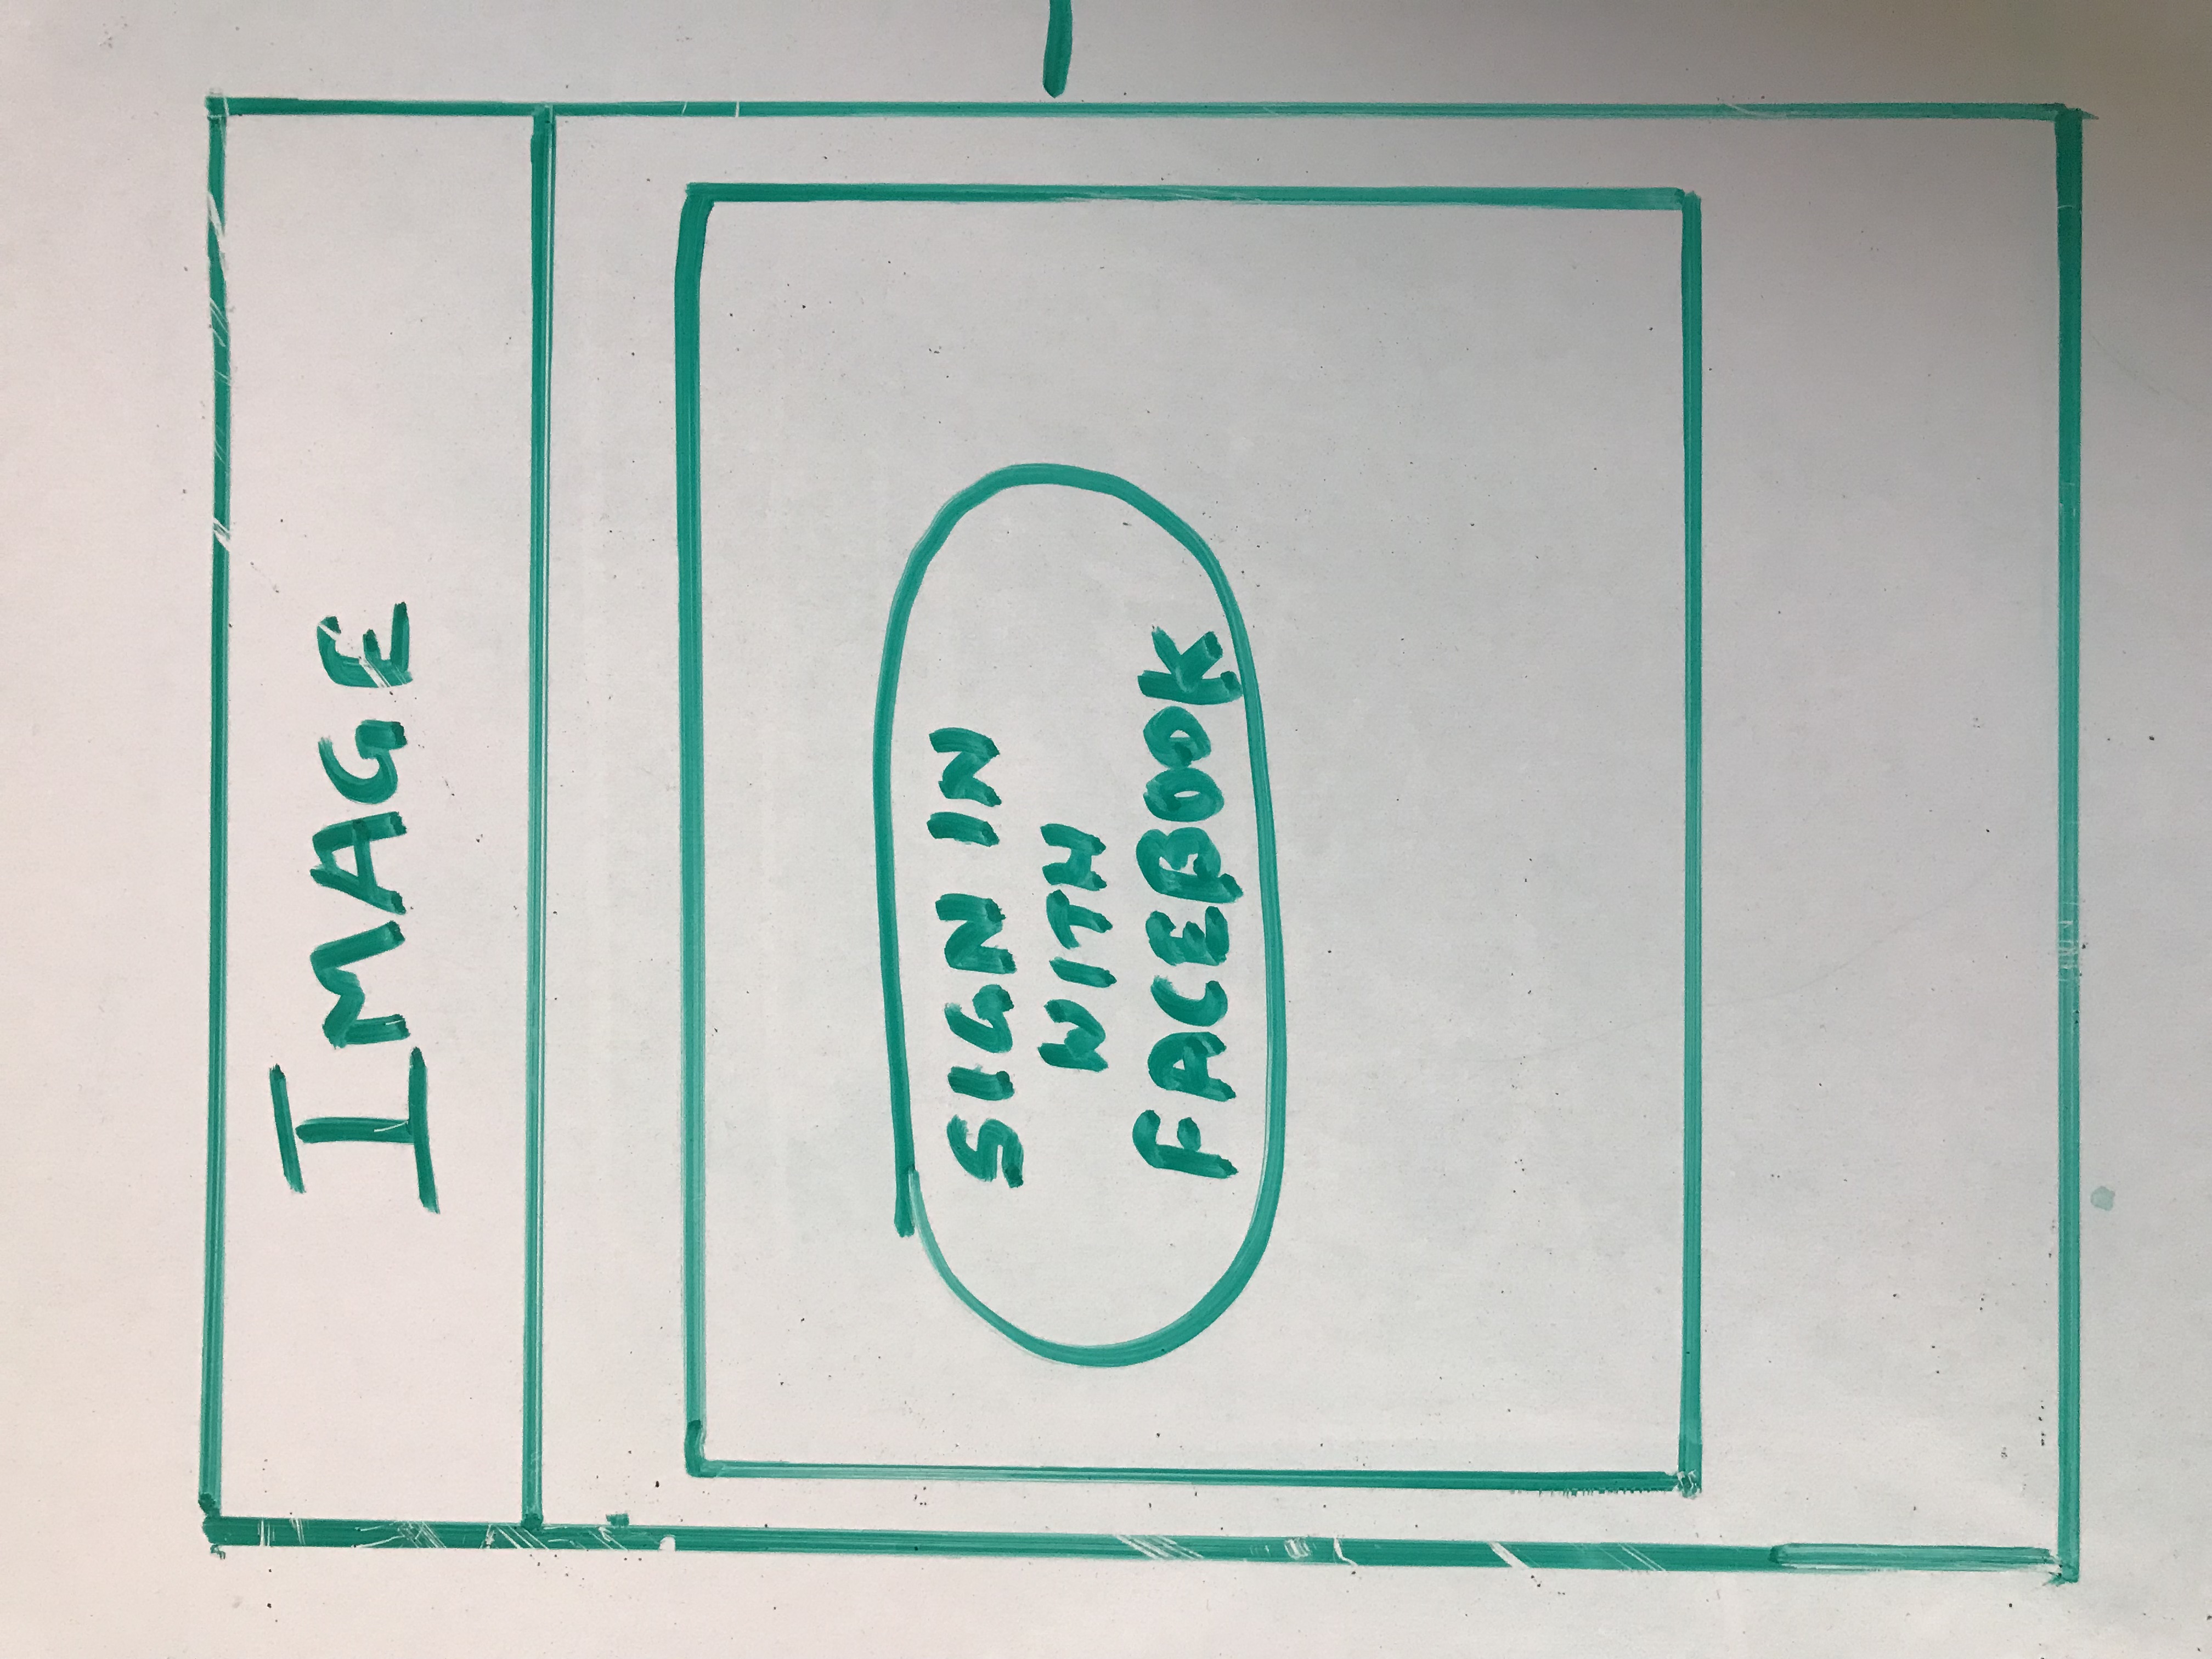 IMAGE
SIGN IN
WITH
FACEBOOK